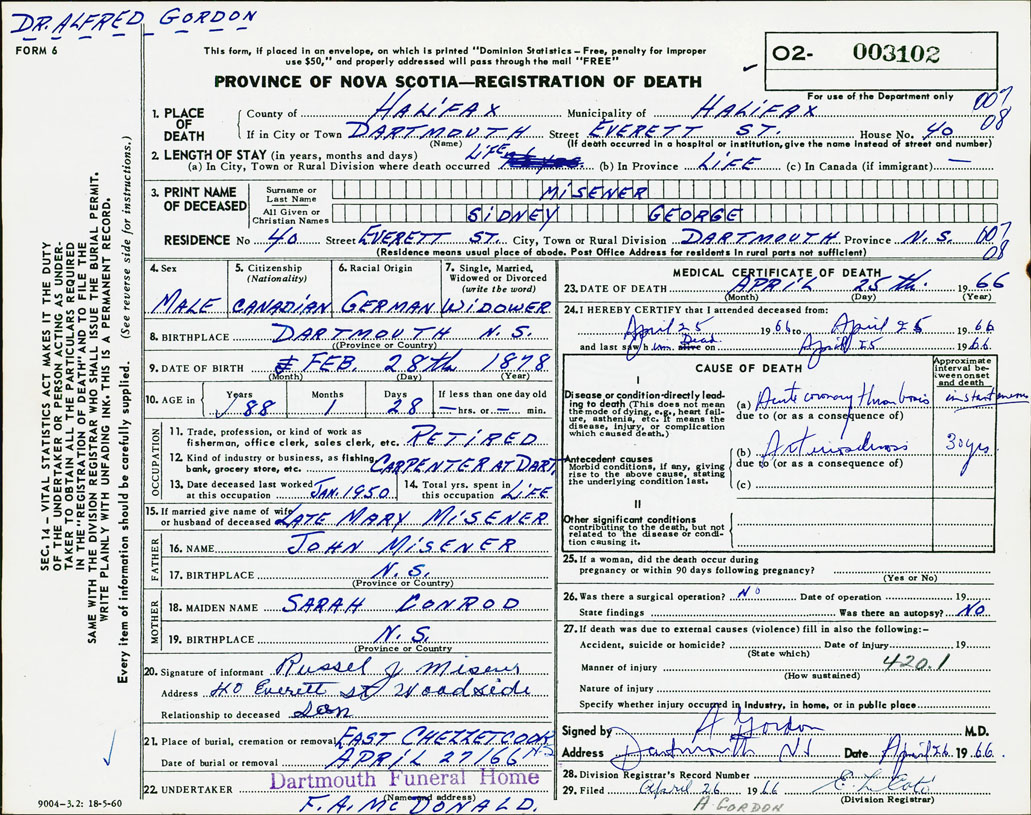 DR. ALFRED GORDON
FORM 6
This form, if placed in an envelope, on which is printed "Dominion Statistics – Free, penalty for improper
use $50," and properly addressed will pass through the mail "FREE"
PROVINCE OF NOVA SCOTIA—REGISTRATION OF DEATH
O2- 003102
For use of the Department only
007
08
1. PLACE OF DEATH
County of HALIFAX Municipality of HALIFAX
If in City or Town DARTMOUTH Street EVERETT ST. House No. 40
(Name) (If death occurred in a hospital or institution, give the name instead of street and number)
2. LENGTH OF STAY (in years, months and days) LIFE
(a) In City, Town or Rural Division where death occurred (b) In Province LIFE (c) In Canada (if immigrant) —
3. PRINT NAME OF DECEASED
Surname or Last Name MISENER
All Given or Christian Names SIDNEY GEORGE
RESIDENCE No 40 Street EVERETT ST. City, Town or Rural Division DARTMOUTH Province N.S.
007
08
(Residence means usual place of abode. Post Office Address for residents in rural parts not sufficient)
4. Sex 5. Citizenship (Nationality) 6. Racial Origin 7. Single, Married, Widowed or Divorced (write the word)
MALE CANADIAN GERMAN WIDOWER
8. BIRTHPLACE DARTMOUTH N.S.
(Province or Country)
9. DATE OF BIRTH FEB. 28th 1878
(Month) (Day) (Year)
10. AGE in Years 88 Months 1 Days 28 If less than one day old — hrs. or — min.
OCCUPATION
11. Trade, profession, or kind of work as
fisherman, office clerk, sales clerk, etc. RETIRED
12. Kind of industry or business, as fishing,
bank, grocery store, etc. CARPENTER AT DART.
13. Date deceased last worked at this occupation JAN. 1950 14. Total yrs. spent in this occupation LIFE
15. If married give name of wife
or husband of deceased LATE MARY MISENER
FATHER
16. NAME JOHN MISENER
17. BIRTHPLACE N.S.
(Province or Country)
MOTHER
18. MAIDEN NAME SARAH CONROD
19. BIRTHPLACE N.S.
(Province or Country)
20. Signature of informant Russel J Misener
Address 40 Everett st Woodside
Relationship to deceased Son
21. Place of burial, cremation or removal EAST CHEZZETCOOK N.S.
Date of burial or removal APRIL 27/66
Dartmouth Funeral Home
22. UNDERTAKER
(Name and address)
F. A. McDONALD.
9004–3.2: 18-5-60
MEDICAL CERTIFICATE OF DEATH
23. DATE OF DEATH APRIL 25th. 1966
(Month) (Day) (Year)
24. I HEREBY CERTIFY that I attended deceased from:
April 25 1966 to April 25 1966
and last saw him Dead alive on April 25 1966
CAUSE OF DEATH
Approximate interval between onset and death
I
Disease or condition directly leading to death (This does not mean the mode of dying, e.g., heart failure, asthenia, etc. It means the disease, injury, or complication which caused death.)
(a) Acute coronary thrombosis
due to (or as a consequence of)
Antecedent causes
Morbid conditions, if any, giving rise to the above cause, stating the underlying condition last.
(b) 30 yrs.
due to (or as a consequence of)
(c)
II
Other significant conditions
contributing to the death, but not related to the disease or condition causing it.
25. If a woman, did the death occur during
pregnancy or within 90 days following pregnancy?
(Yes or No)
26. Was there a surgical operation? No Date of operation 19
State findings Was there an autopsy? No
27. If death was due to external causes (violence) fill in also the following:–
Accident, suicide or homicide? Date of injury 19
(State which)
Manner of injury 420.1
(How sustained)
Nature of injury
Specify whether injury occurred in Industry, in home, or in public place
Signed by A Gordon M.D.
Address Dartmouth N.S. Date April 26 1966
28. Division Registrar's Record Number
29. Filed April 26 1966
(Division Registrar)
A. GORDON
SEC. 14 – VITAL STATISTICS ACT MAKES IT THE DUTY
OF THE UNDERTAKER OR PERSON ACTING AS UNDER-
TAKER TO OBTAIN ALL THE PARTICULARS REQUIRED
IN THE "REGISTRATION OF DEATH" AND TO FILE THE
SAME WITH THE DIVISION REGISTRAR WHO SHALL ISSUE THE BURIAL PERMIT.
WRITE PLAINLY WITH UNFADING INK. THIS IS A PERMANENT RECORD.
Every item of information should be carefully supplied. (See reverse side for instructions.)